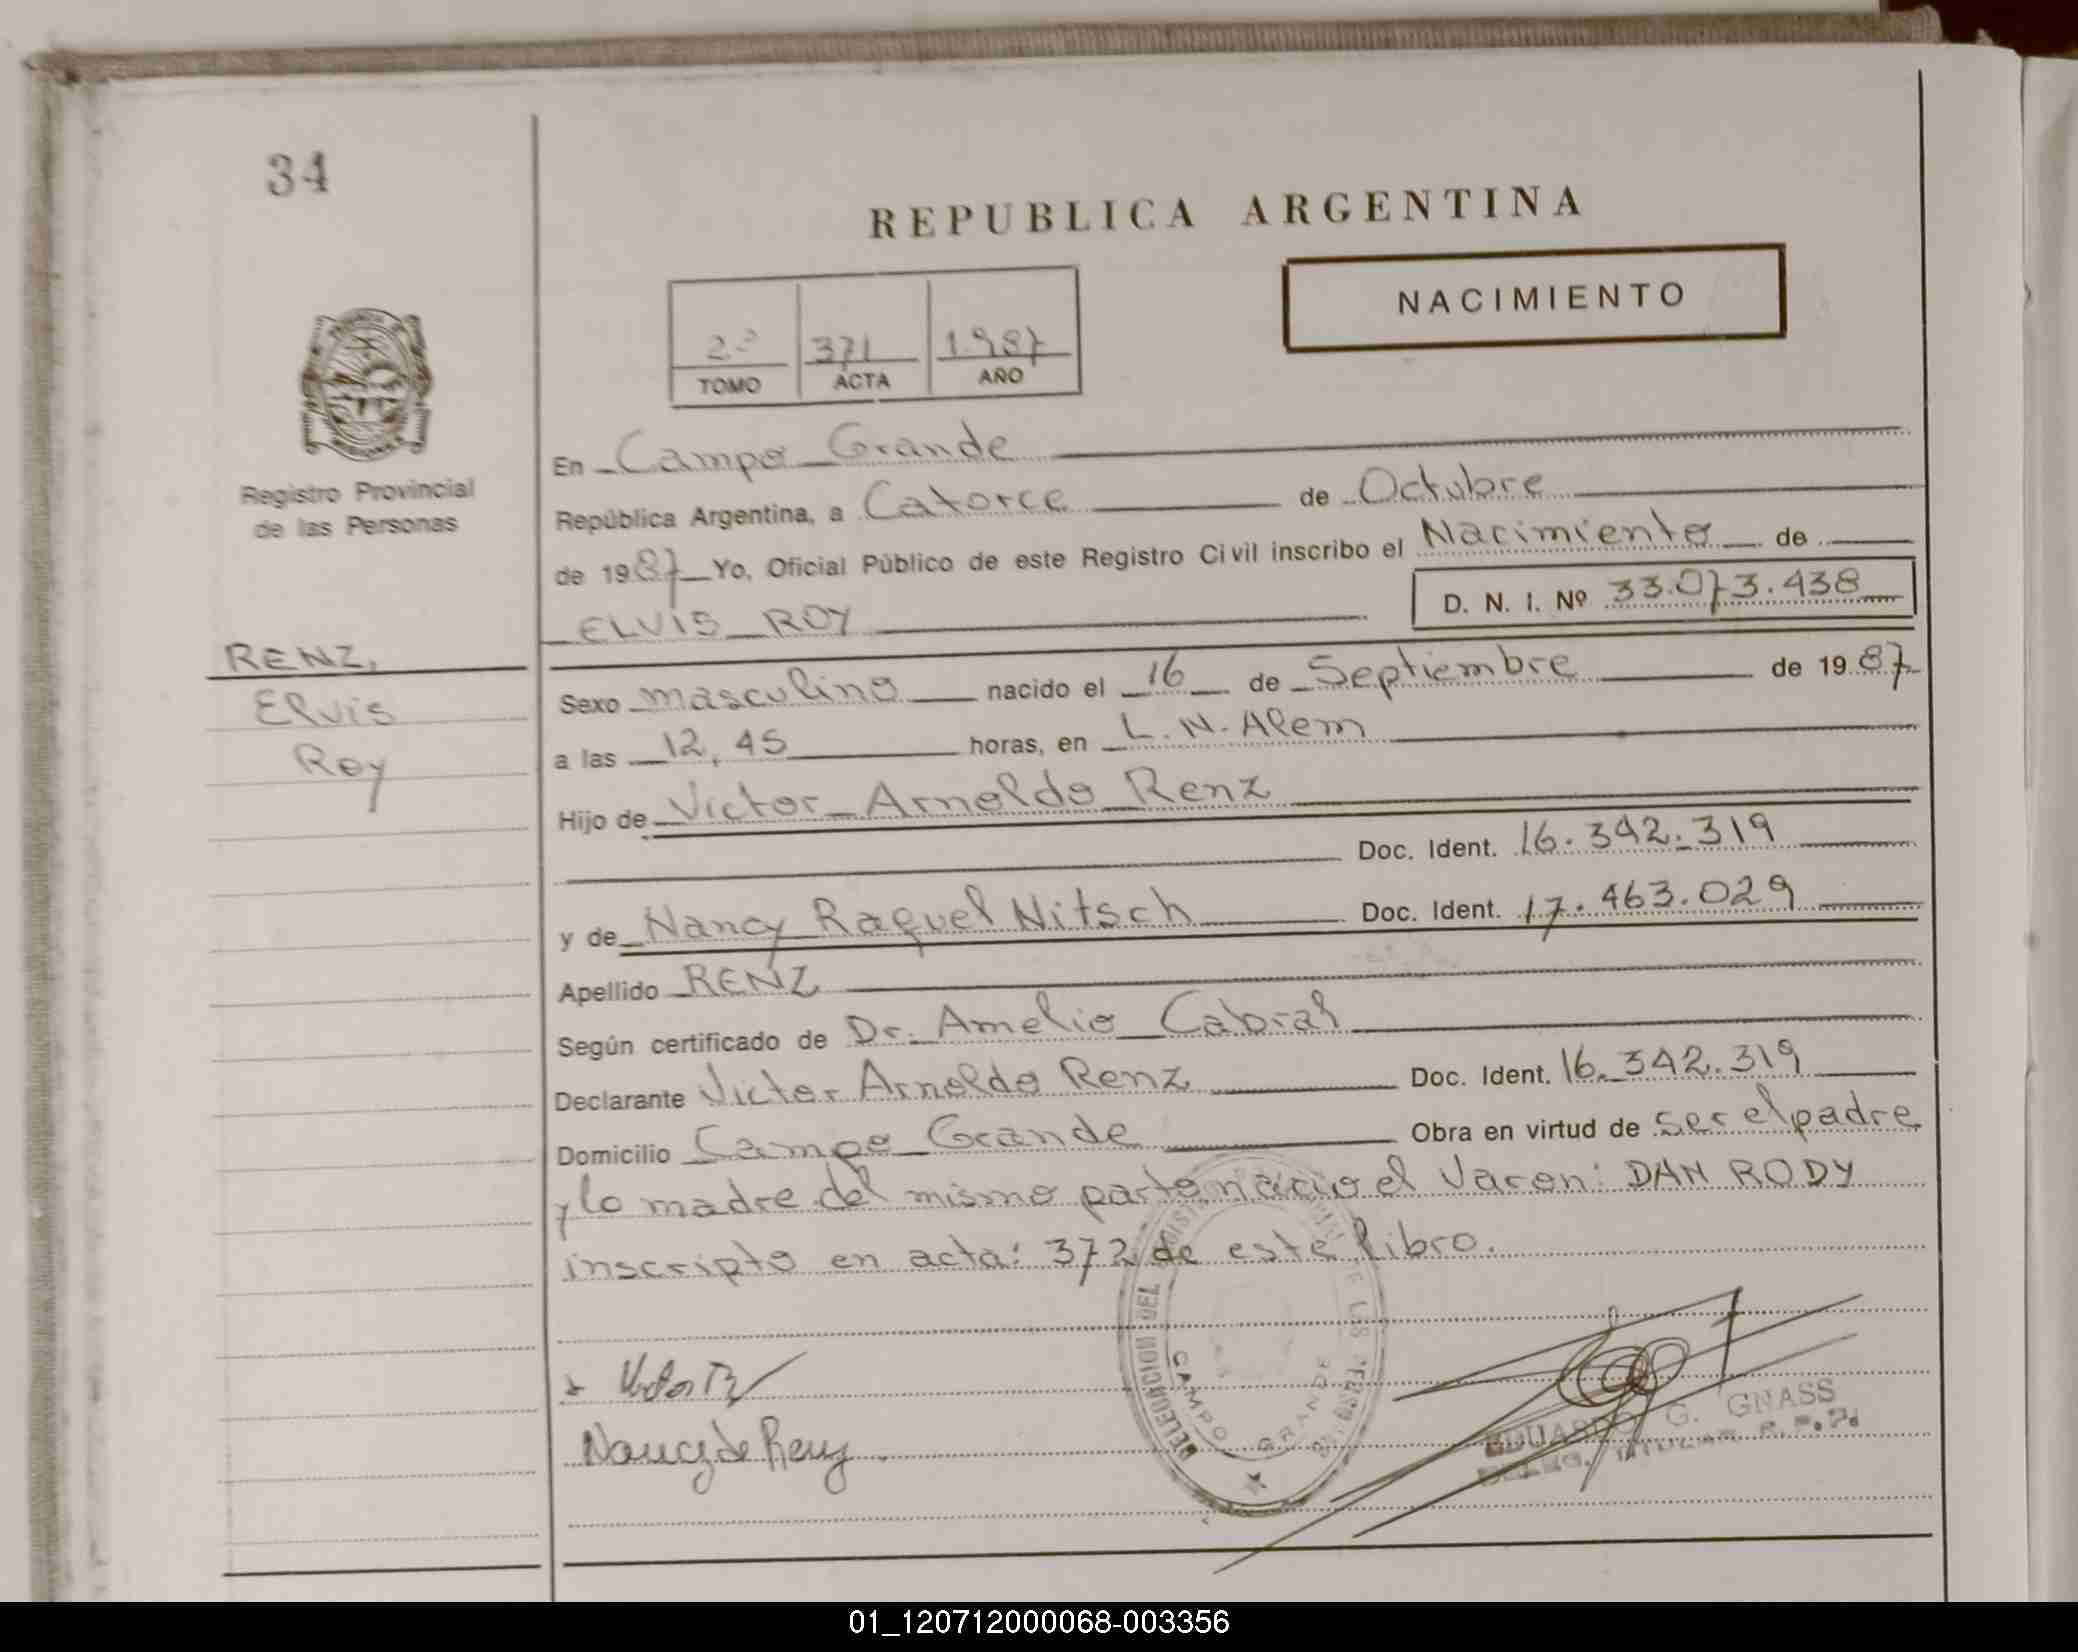 34
REPUBLICA ARGENTINA
NACIMIENTO
2º 371 1.987
TOMO ACTA AÑO
Registro Provincial
de las Personas
En Campo Grande
República Argentina, a Catorce de Octubre
de 1987 Yo, Oficial Público de este Registro Civil inscribo el Nacimiento de
ELVIS ROY D. N. I. Nº 33.073.438
RENZ,
Elvis
Roy
Sexo masculino nacido el 16 de Septiembre de 1987
a las 12,45 horas, en L. N. Alem
Hijo de Victor Arnoldo Renz
Doc. Ident. 16.342.319
y de Nancy Raquel Nitsch Doc. Ident. 17.463.029
Apellido RENZ
Según certificado de Dr. Amelio Cabral
Declarante Victor Arnoldo Renz Doc. Ident. 16.342.319
Domicilio Campo Grande Obra en virtud de ser el padre
y la madre del mismo parto nacio el Varon: DAN RODY
inscripto en acta: 372 de este libro.
DELEGACION DEL LAS
CAMPO GRANDE
Nancy de Renz
EDUARDO G. GNASS
01_120712000068-003356